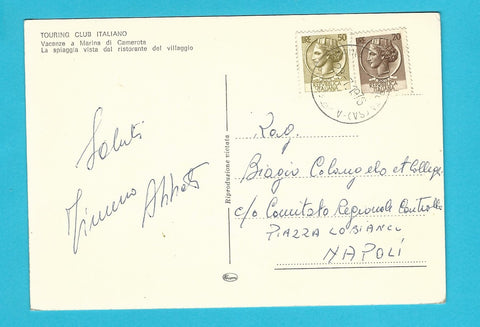 TOURING CLUB ITALIANO
Vacanze a Marina di Camerota
La spiaggia vista dal ristorante del villaggio
LIRE 50
LIRE 20
Riproduzione vietata
Saluti
Rag.
Biagio Colangelo e Colleghi
c/o Comitato Regionale Controllo
PIAZZA LO BIANCO
NAPOLI